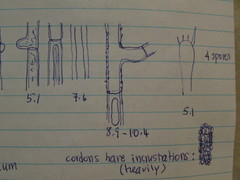 4 spores
5.1
7.6
8.9 - 10.4
5.1
cordons have incrustations:
(heavily)
um